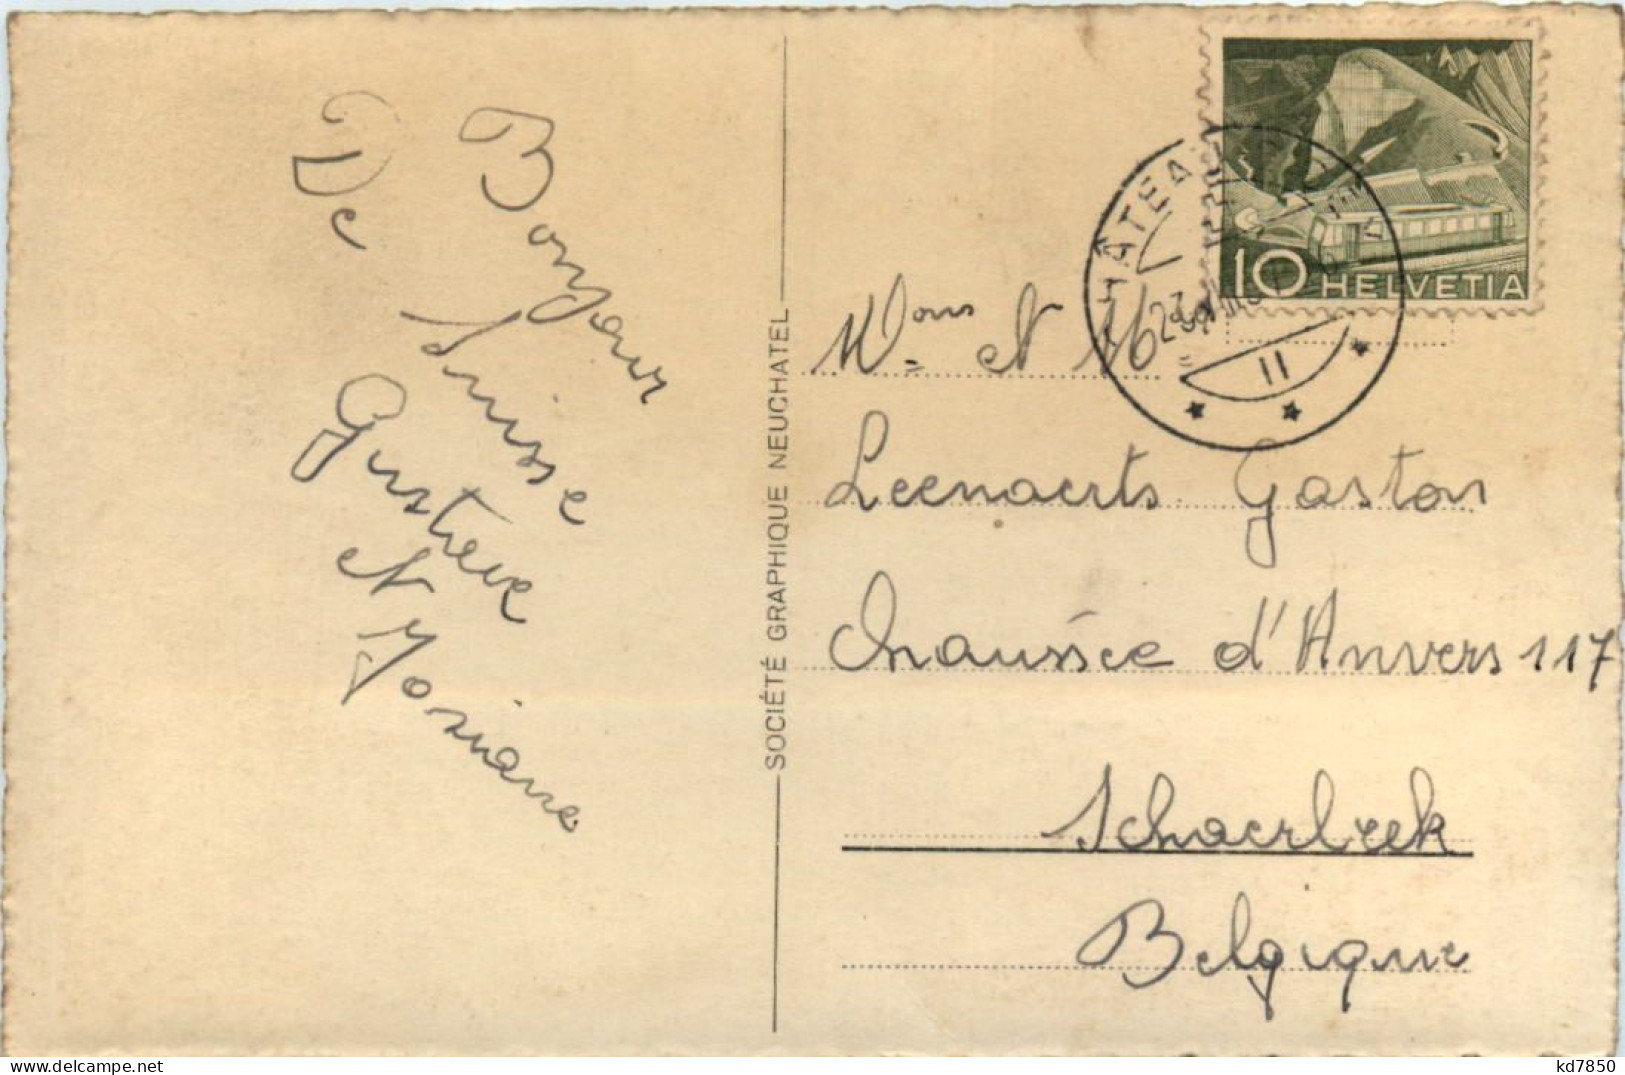 Bonjour
De Suisse
Gustave
et Josiane
SOCIÉTÉ GRAPHIQUE NEUCHATEL
10 HELVETIA
II
Mons et M
Leenaerts Gaston
Chaussée d'Anvers 117
Schaerbeek
Belgique
kd7850